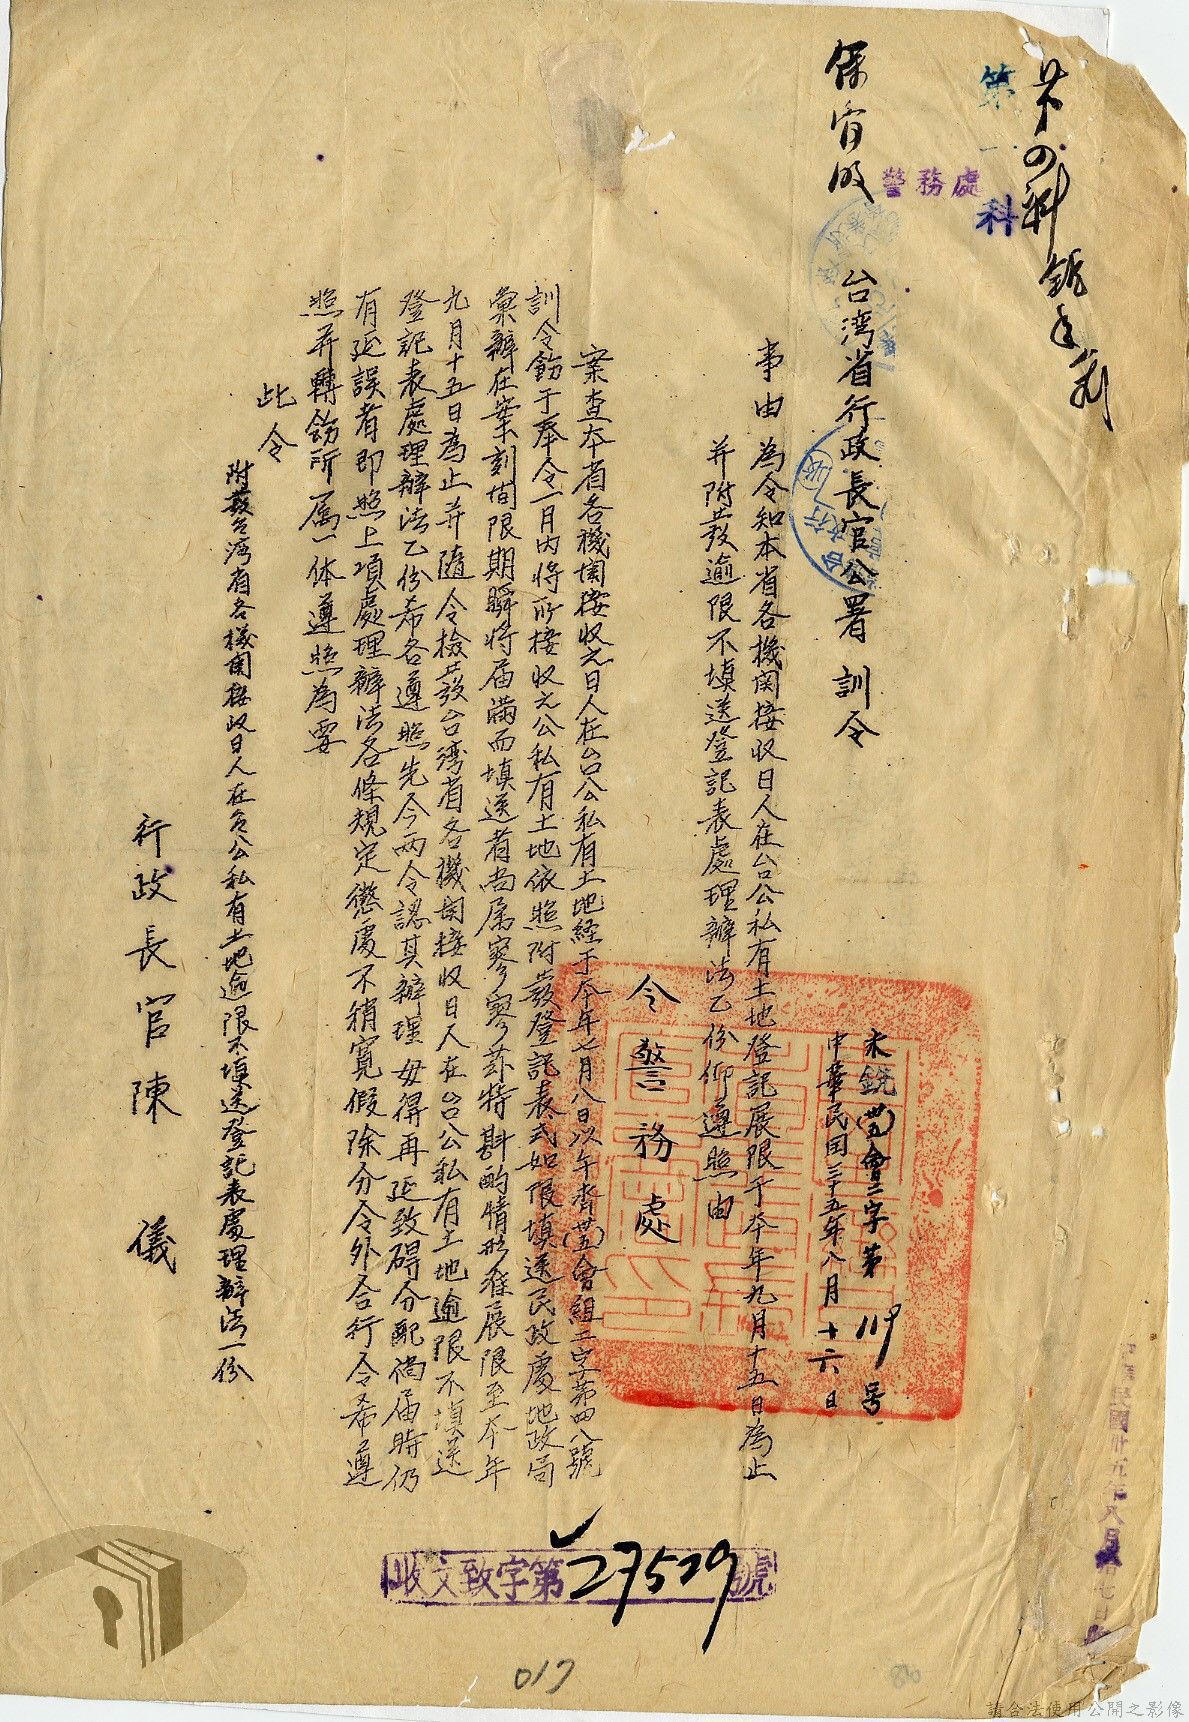 第四科
第一科
警務處
台湾省行政長官公署 訓令
未銑(卅五)會二字第119号
中華民国三十五年八月十六日
事由 為令知本省各機関接收日人在台公私有土地登記展限于本年九月十五日為止
并附發逾限不填送登記表處理辦法乙份仰遵照由
令警務處
案查本省各機関接收日人在台公私有土地経于本年七月八日以午齊(卅五)會組二字第四八號
訓令飭于奉令一月內将所接收之公私有土地依照附發登記表式如限填送民政處地政局
彙辦在案刻間限期瞬将届滿而填送者尚属寥寥茲特斟酌情形准展限至本年
九月十五日為止并隨令檢發台湾省各機関接收日人在台公私有土地逾限不填送
登記表處理辦法乙份希各遵照先今両令認真辦理毋得再延致碍分配倘届時仍
有延誤者即照上項處理辦法各條規定懲處不稍寬假除分令外合行令希遵
照并轉飭所属一体遵照為要
此令
附發台湾省各機関接收日人在台公私有土地逾限不填送登記表處理辦法一份
行政長官陳 儀
中華民國卅五年八月拾七日
收文致字第27529號
017
請合法使用公開之影像